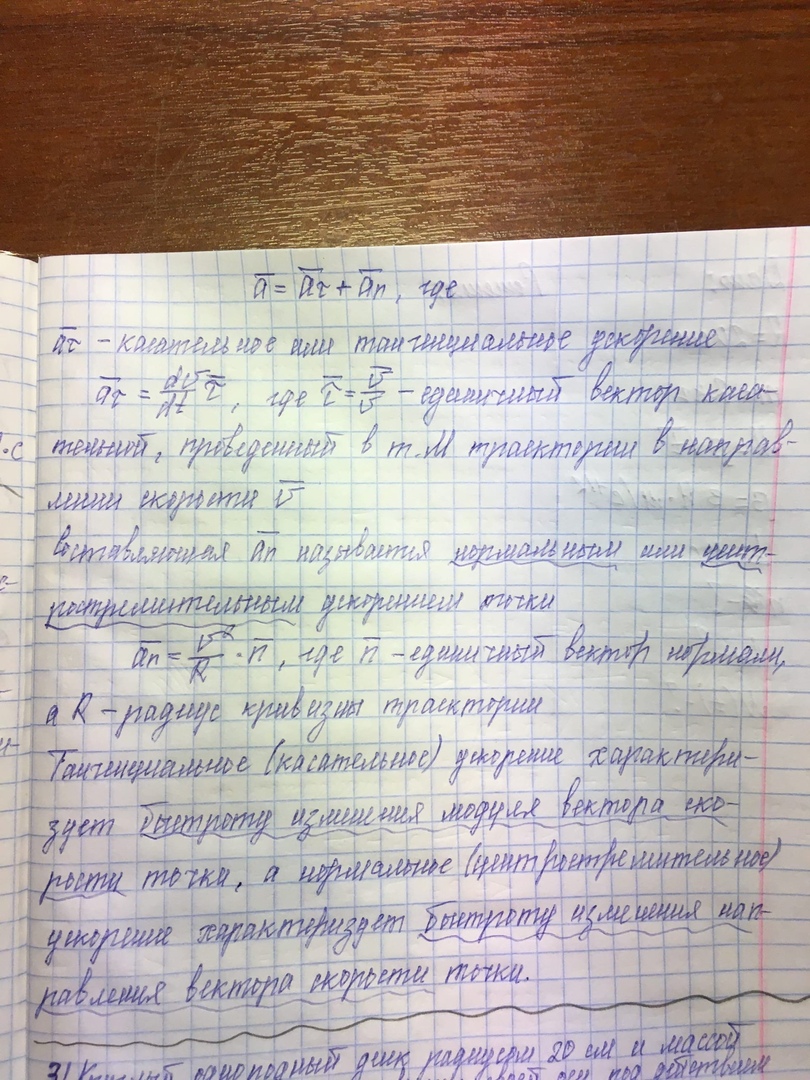 ā = āτ + ān, где
āτ – касательное или тангенциальное ускорение
āτ = dv/dt τ̄, где τ̄ = v̄/v – единичный вектор каса-
тельной, проведенный в т. М траектории в направ-
лении скорости v̄
Составляющая ān называется нормальным или цент-
ростремительным ускорением точки
ān = v²/R · n̄, где n̄ – единичный вектор нормали,
а R – радиус кривизны траектории
Тангенциальное (касательное) ускорение характери-
зует быстроту изменения модуля вектора ско-
рости точки, а нормальное (центростремительное)
ускорение характеризует быстроту изменения нап-
равления вектора скорости точки.
3) Круглый однородный диск радиусом 20 см и массой
своей оси под действием